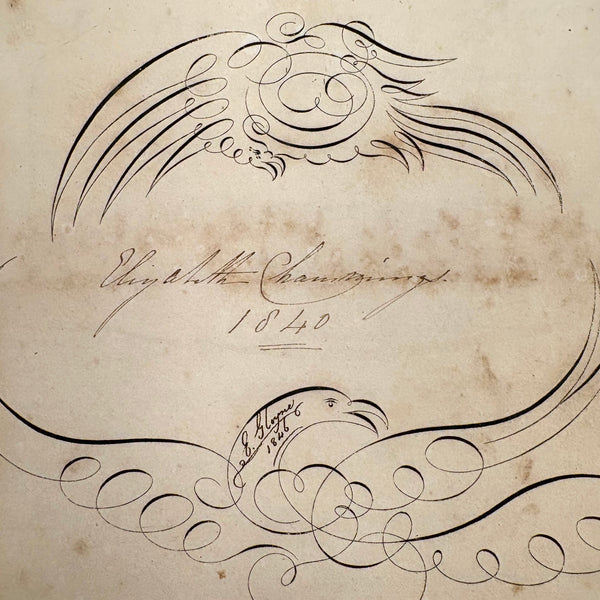 Elizabeth Channings.
1840
E. Gloyne
1846